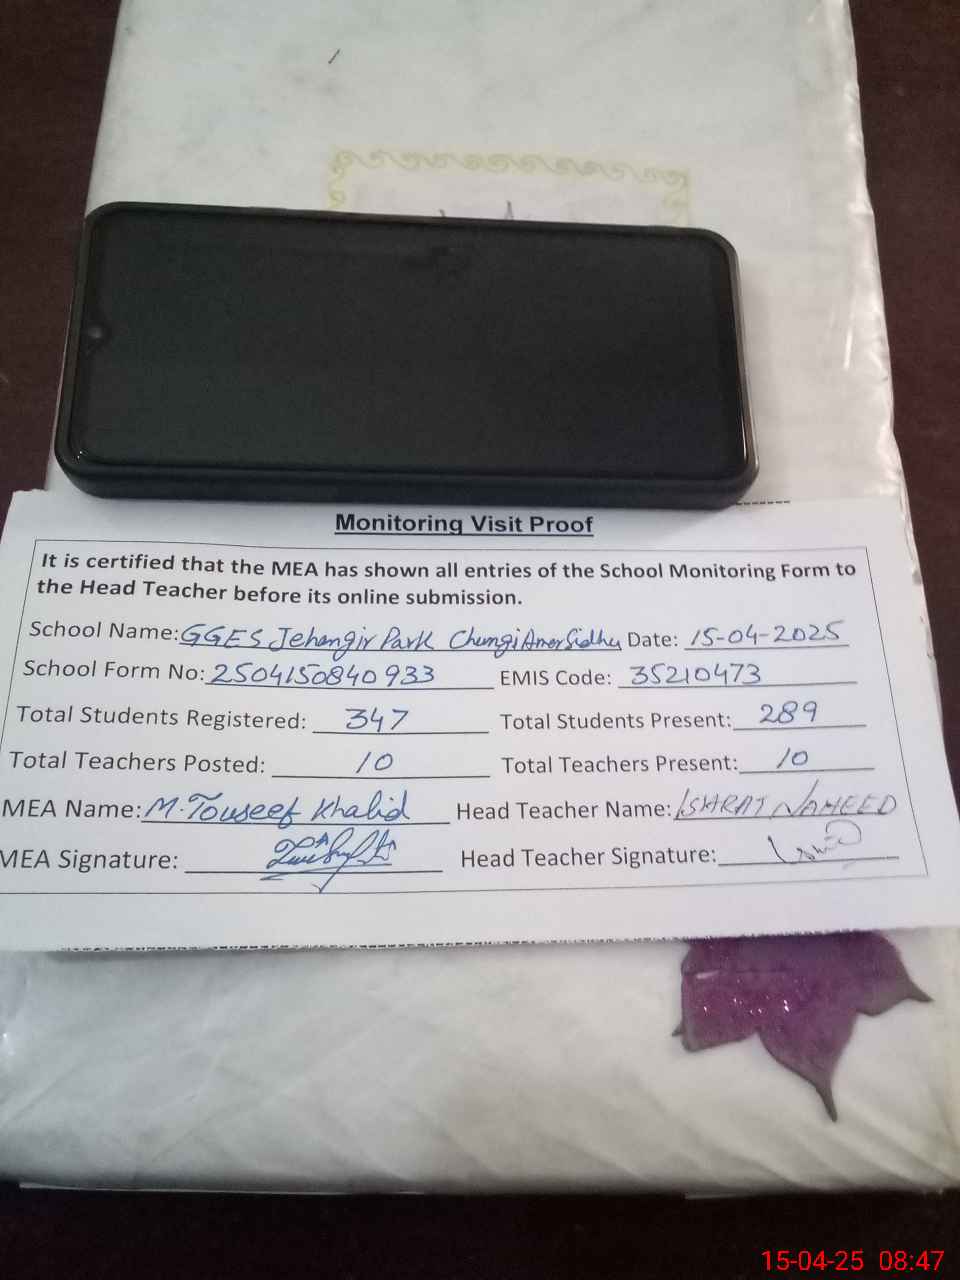 Monitoring Visit Proof
It is certified that the MEA has shown all entries of the School Monitoring Form to
the Head Teacher before its online submission.
School Name: GGES Jehangir Park Chungi Amer Sidhu Date: 15-04-2025
School Form No: 2504150840933 EMIS Code: 35210473
Total Students Registered: 347 Total Students Present: 289
Total Teachers Posted: 10 Total Teachers Present: 10
MEA Name: M. Touseef Khalid Head Teacher Name: ISHRAT NAHEED
MEA Signature: Head Teacher Signature:
15-04-25 08:47